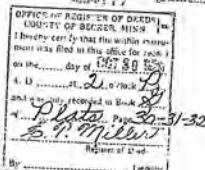 OFFICE OF REGISTER OF DEEDS
COUNTY OF BECKER, MINN.
I hereby certify that the within instru-
ment was filed in this office for record
on the day of OCT 30
A. D. at 2 o'clock P
and was duly recorded in Book
of Plats Page 30-31-32
E. P. Miller
Register of Deeds
By Deputy